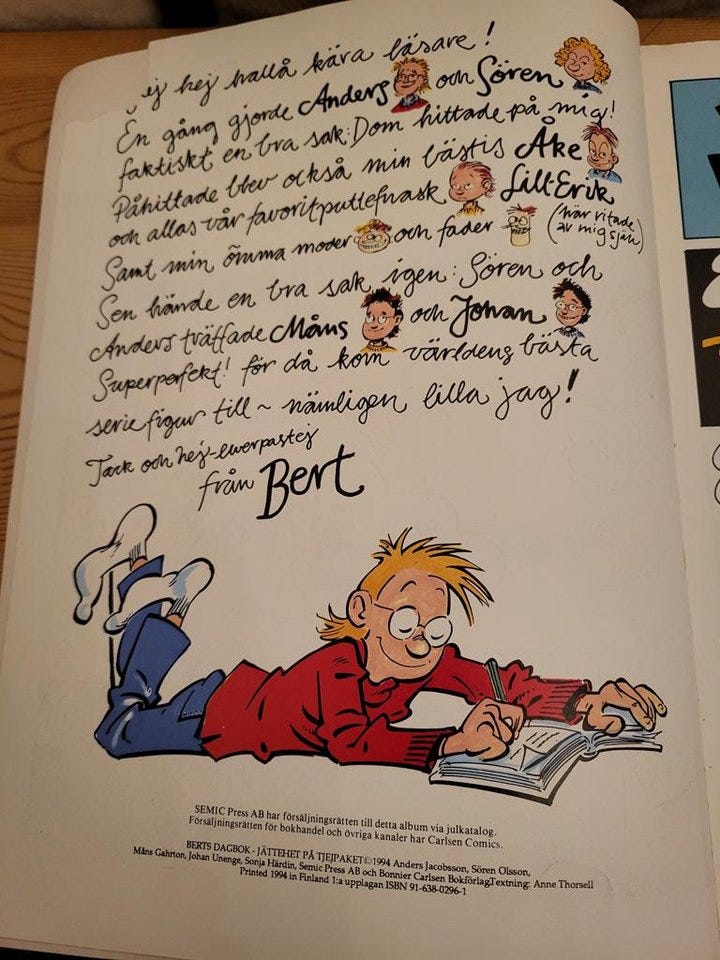 ej hej hallå kära läsare!
En gång gjorde Anders och Sören
faktiskt en bra sak: Dom hittade på mig!
Påhittade blev också min bästis Åke
och allas vår favoritputtefnask Lill-Erik
Samt min ömma moder och fader (här ritade
av mig själv)
Sen hände en bra sak igen: Sören och
Anders träffade Måns och Johan
Superperfekt! för då kom världens bästa
seriefigur till ~ nämligen lilla jag!
Tack och hej-lewerpastej
från Bert
SEMIC Press AB har försäljningsrätten till detta album via julkatalog.
Försäljningsrätten för bokhandel och övriga kanaler har Carlsen Comics.
BERTS DAGBOK - JÄTTEHET PÅ TJEJPAKET © 1994 Anders Jacobsson, Sören Olsson,
Måns Gahrton, Johan Unenge, Sonja Härdin, Semic Press AB och Bonnier Carlsen Bokförlag.Textning: Anne Thorsell
Printed 1994 in Finland 1:a upplagan ISBN 91-638-0296-1